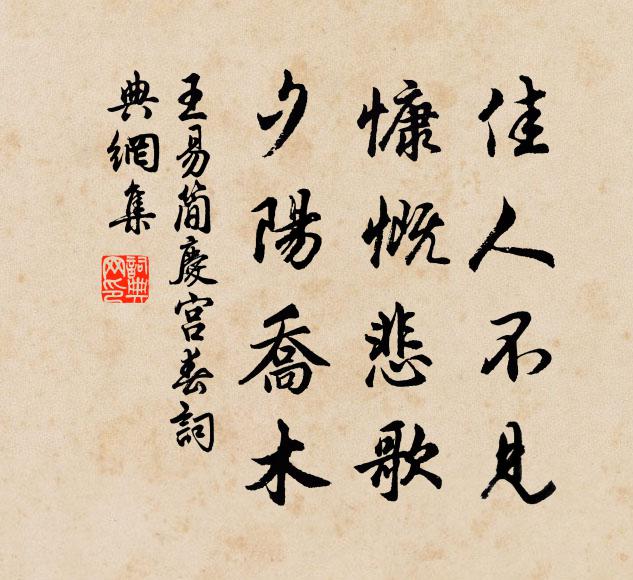 佳人不見
慷慨悲歌
夕陽喬木
王易简慶宮春詞
典網集
詞典網印